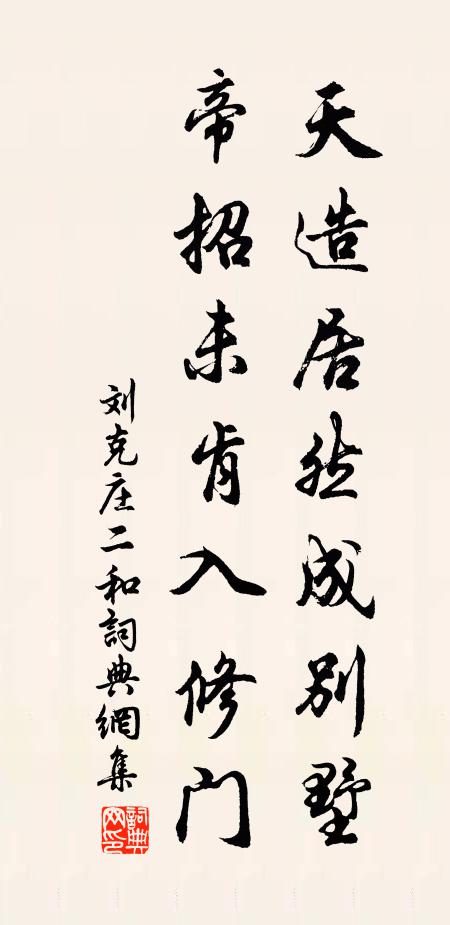 天造居然成别墅
帝招未肯入修门
刘克庄二和詞典網集
詞典網印